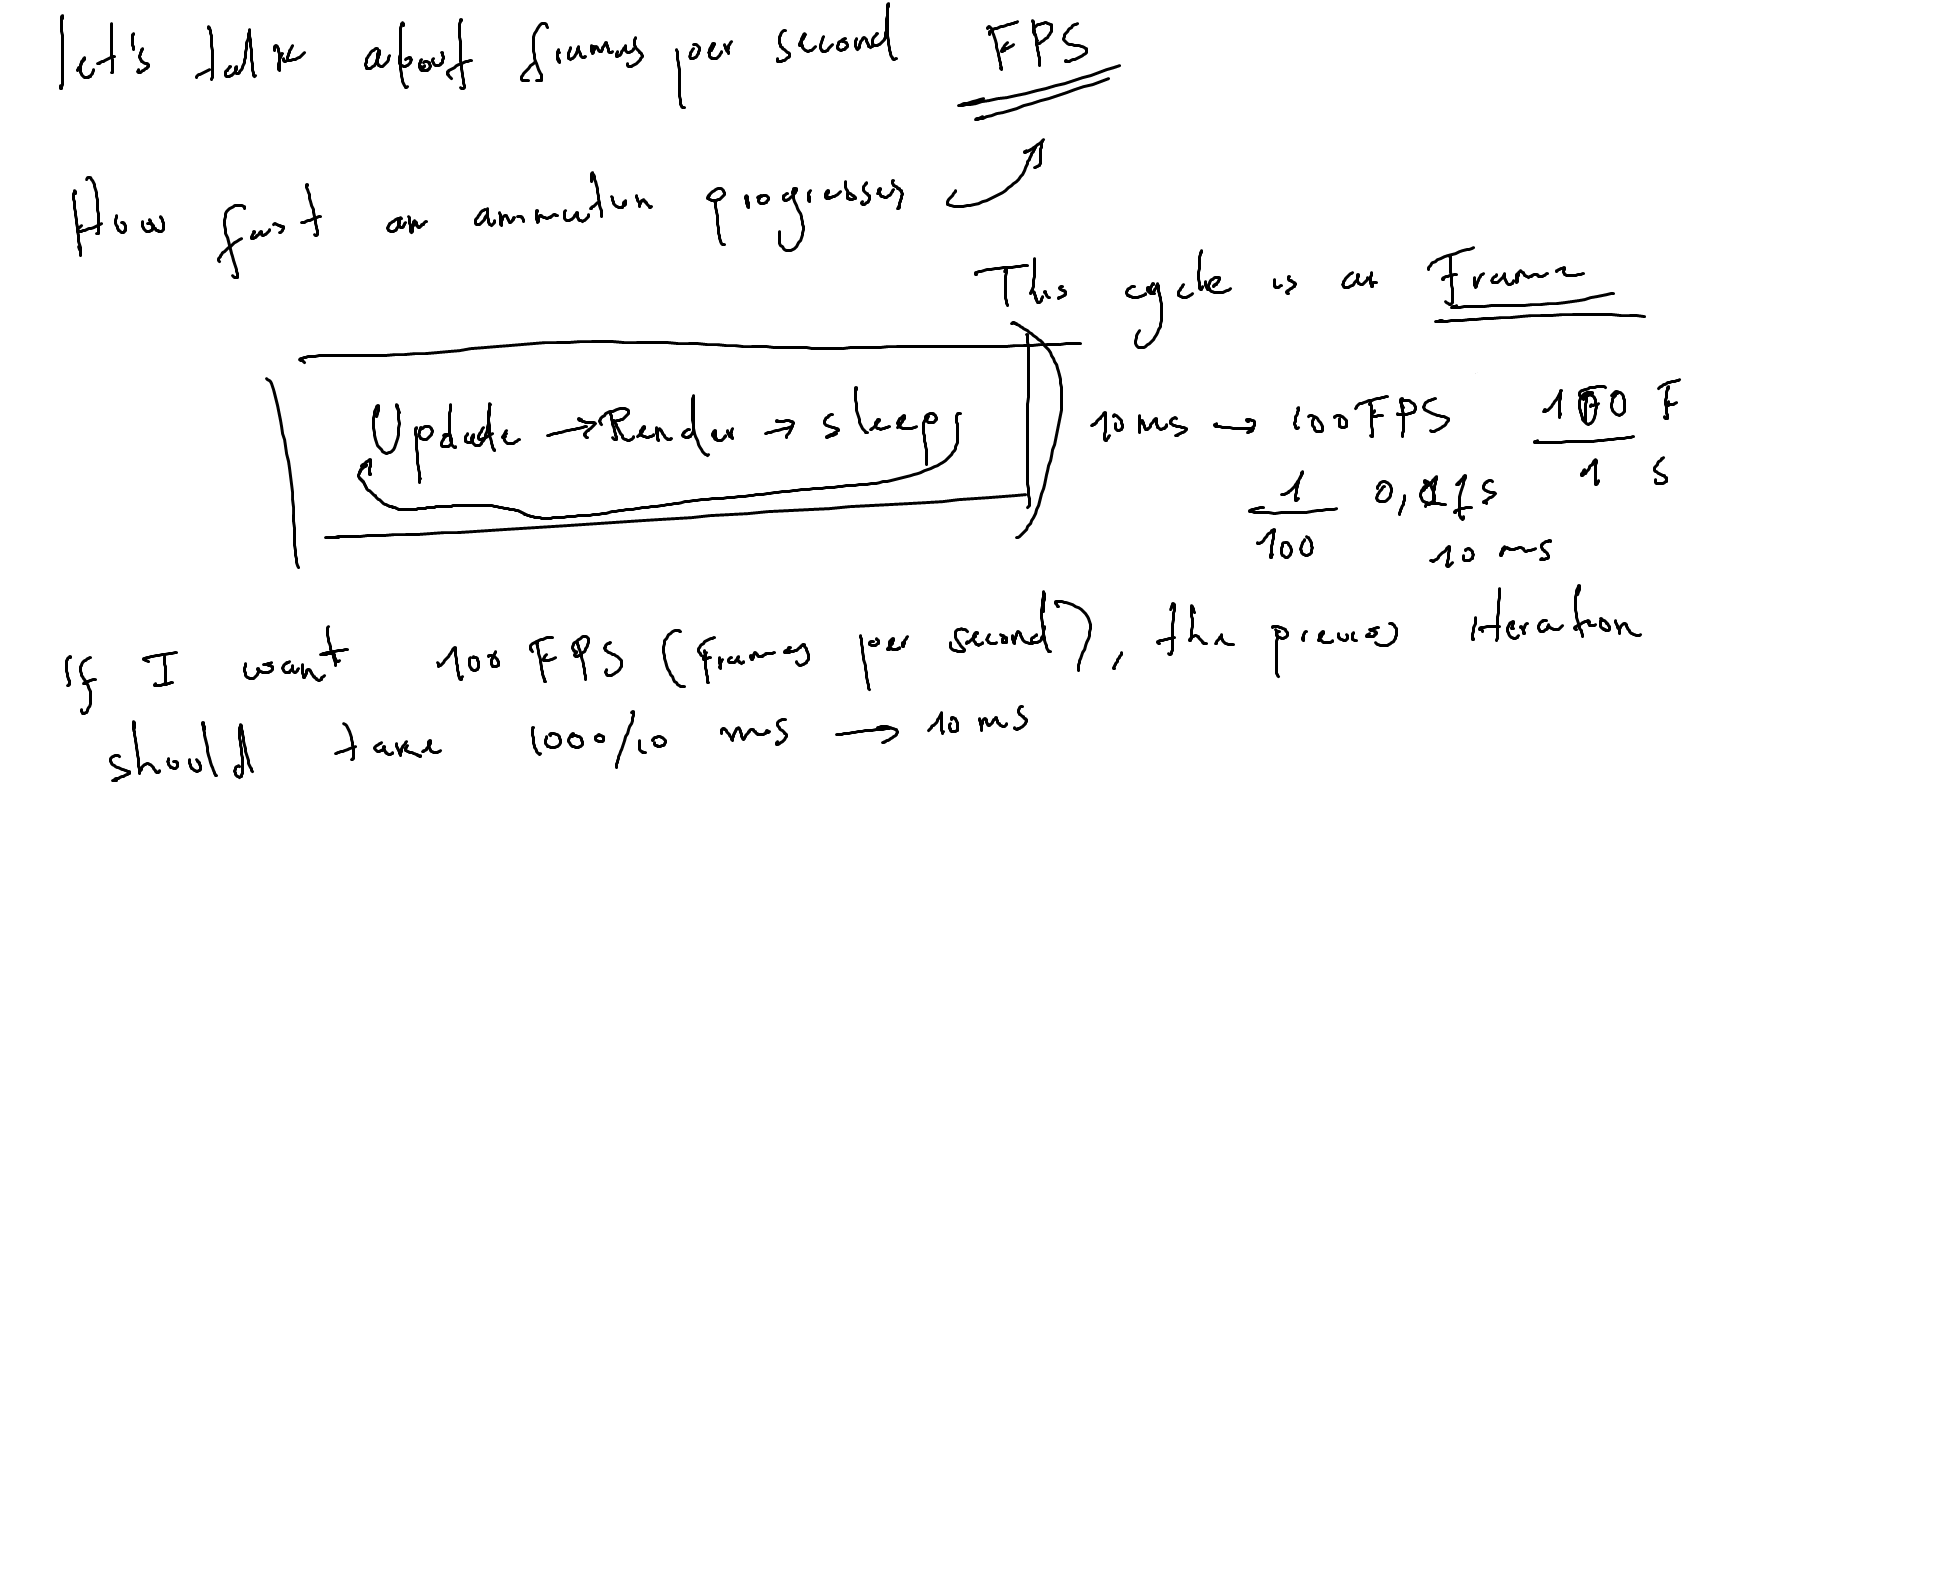 let's talk about frames per second FPS
How fast an animation progresses
This cycle is a Frame
Update → Render → sleeps
10 ms → 100 FPS
100 F
1 s
1
100
s
10 ms
If I want 100 FPS (Frames per second), the previous iteration
should take 1000/10 ms → 10 ms